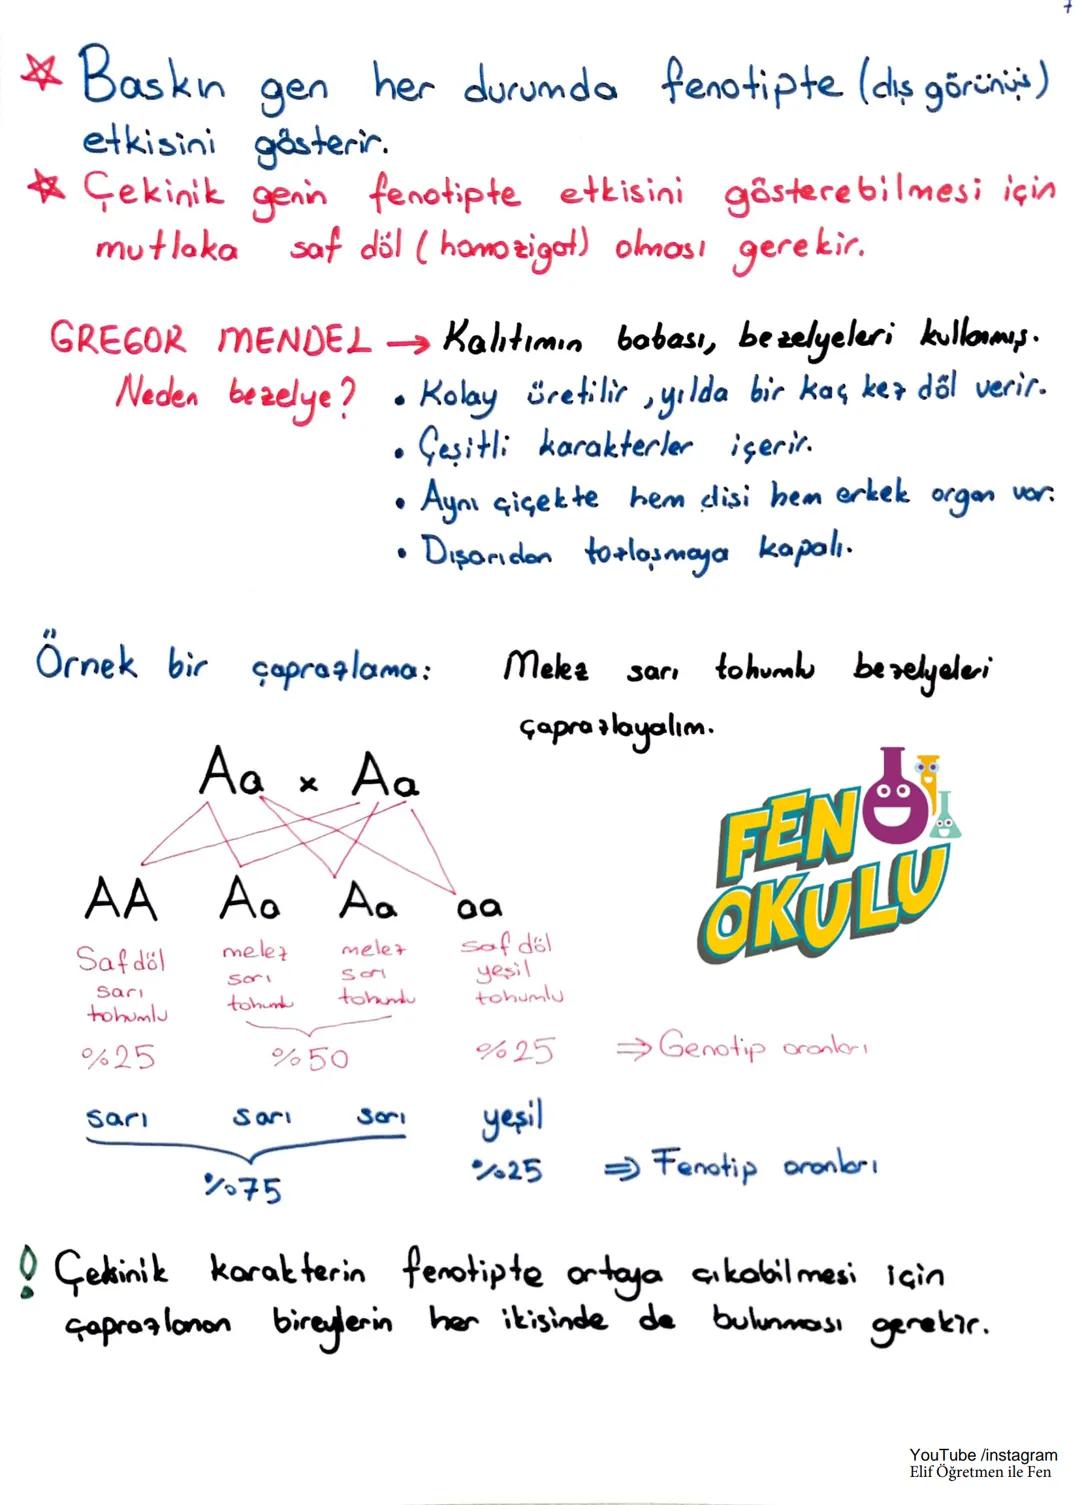 7
Baskın gen her durumda fenotipte (dış görünüş)
etkisini gösterir.
Çekinik genin fenotipte etkisini gösterebilmesi için
mutlaka saf döl (homozigot) olması gerekir.
GREGOR MENDEL → Kalıtımın babası, bezelyeleri kullanmış.
Neden bezelye? • Kolay üretilir, yılda bir kaç kez döl verir.
• Çeşitli karakterler içerir.
• Aynı çiçekte hem dişi hem erkek organ var.
• Dışarıdan tozlaşmaya kapalı.
Örnek bir çaprazlama: Melez sarı tohumlu bezelyeleri
çaprazlayalım.
Aa x Aa
FEN
OKULU
AA Aa Aa aa
Saf döl melez melez saf döl
sarı sarı sarı yeşil
tohumlu tohumlu tohumlu tohumlu
%25 %50 %25 ⇒ Genotip oranları
sarı sarı sarı yeşil
%75 %25 ⇒ Fenotip oranları
! Çekinik karakterin fenotipte ortaya çıkabilmesi için
çaprazlanan bireylerin her ikisinde de bulunması gerekir.
YouTube /instagram
Elif Öğretmen ile Fen